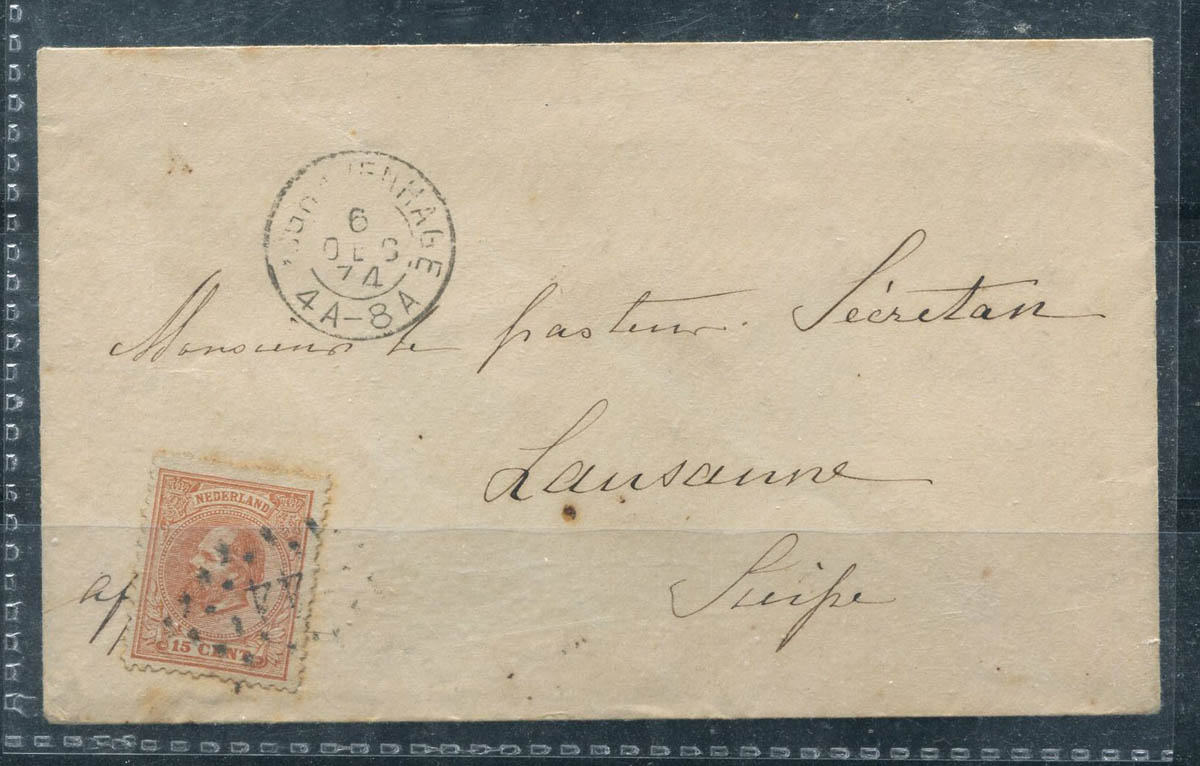 'SGRAVENHAGE
6
DEC
74
4A-8A
Monsieur le pasteur Sécretan
Lausanne
Suiſse
af
NEDERLAND
44
15 CENT